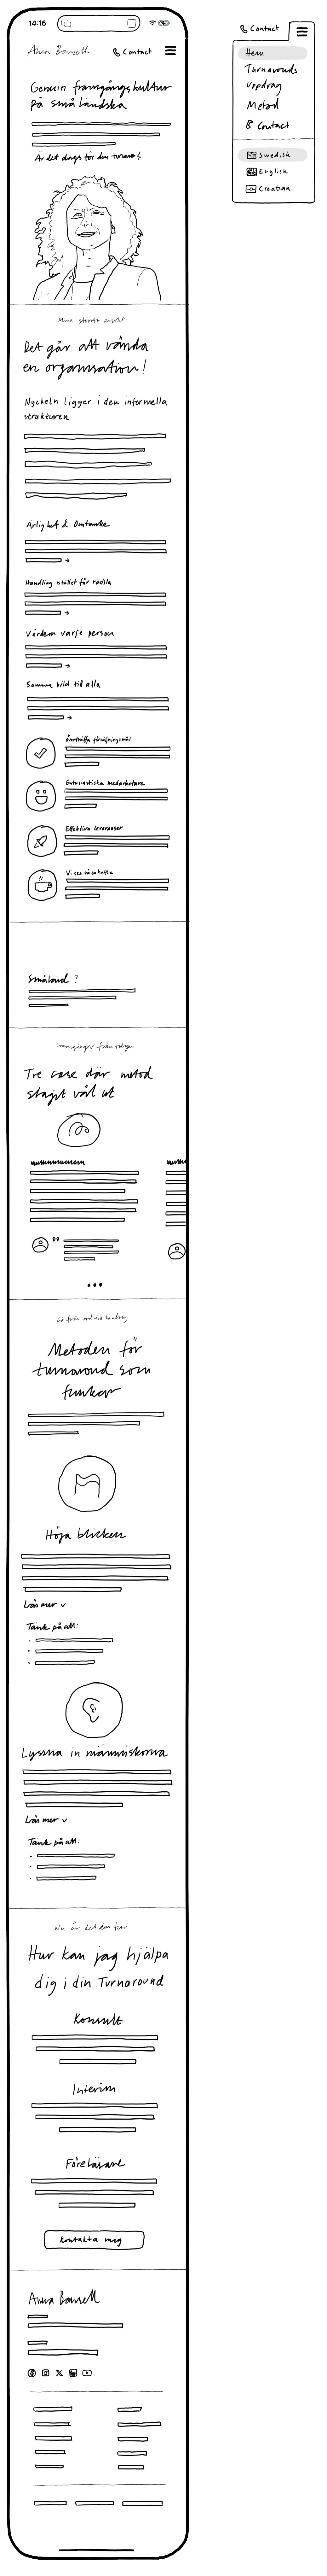 14:16
Anna Bansell
Contact
Genuin framgångskultur
på småländska
Är det dags för din turnaround?
Mina största avsikt:
Det går att vända
en organisation!
Nyckeln ligger i den informella
strukturen
Ärlighet & Omtanke
Handling istället för rädsla
Värdera varje person
Samma bild till alla
Överträffa försäljningsmål
Entusiastiska medarbetare
Effektiva leveranser
Vi ses på en kaffe
Småland ?
Framgångar från
Tre case där metod
slagit väl ut
"
Gå från ord till handling
Metoden för
turnaround som
funkar
Höja blicken
Läs mer
Tänk på att:
Lyssna in människorna
Läs mer
Tänk på att:
Nu är det din tur
Hur kan jag hjälpa
dig i din Turnaround
Konsult
Interim
Föreläsare
Kontakta mig
Anna Bansell
Contact
Hem
Turnarounds
Uppdrag
Metod
Contact
Swedish
English
Croatina